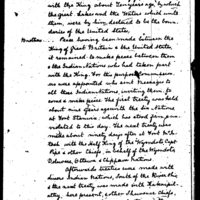 with the King about ten years ago, by which
the great Lakes and the Waters which unite
them, were by him declared to be the boun-
daries of the United States,
Brothers.
Peace having been made between the
King of Great Britain & the United States,
it remained to make peace between them
& the Indian Nations who had taken part
with the King. For this purpose commission-
ers were appointed who sent messages to
all those Indian Nations, inviting them to
come & make peace. The first treaty was held
about nine years ago with the Six Nations
at Fort Stanwix, which has stood firm, un-
violated to this day. The next treaty was
made about ninety days after at Fort McIn-
tosh with the Half King of the Wyandots, Capt.
Pipe & other Chiefs, in behalf of the Wyandots
Delaware, Ottawa & Chippawa Nations
Afterwards treaties were made with
divers Indian Nations, South of the River Ohio
& the next treaty was made with
present, & other Shawnese Chiefs,